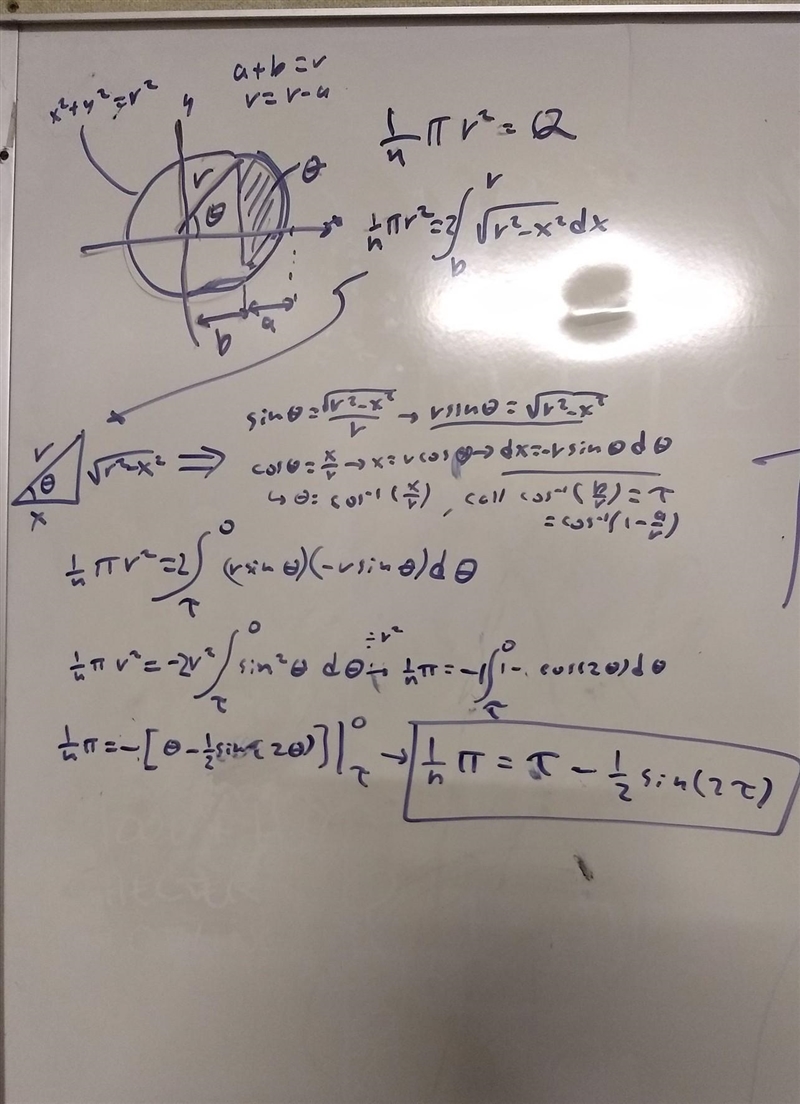 a+b=r
x²+y²=r²
y
r=r-a
1/n π r² = Q
r
θ
θ
x
1/n πr² = 2∫_b^r √(r²-x²) dx
b
a
sinθ = √(r²-x²)/r → rsinθ = √(r²-x²)
r
θ
√(r²-x²) ⇒
cosθ = x/r → x=rcosθ → dx=-rsinθdθ
x
↳ θ = cos⁻¹(x/r), call cos⁻¹(b/r) = τ
= cos⁻¹(1-a/r)
1/n πr² = 2∫_τ^0 (rsinθ)(-rsinθ)dθ
÷r²
1/n πr² = -2r² ∫_τ^0 sin²θ dθ → 1/n π = -1∫_τ^0 1-cos(2θ)dθ
1/n π = -[θ - 1/2 sin(2θ)]|_τ^0 → 1/n π = τ - 1/2 sin(2τ)